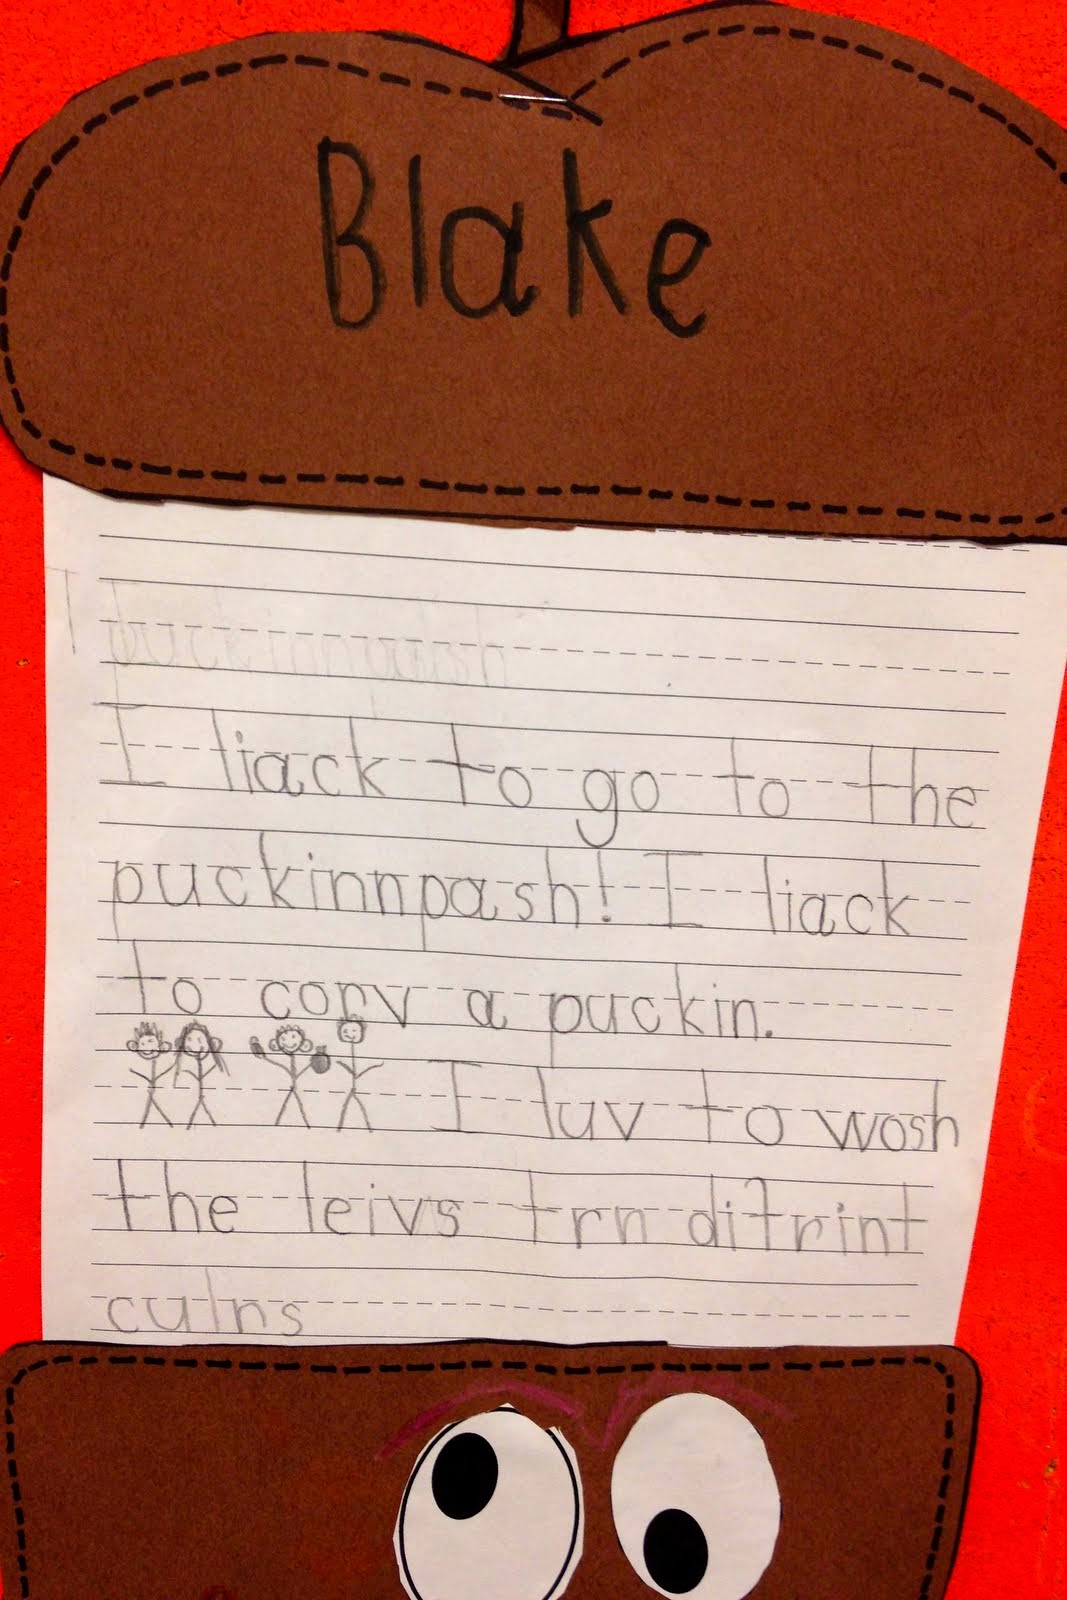 Blake
I puckinnpash
I liack to go to the
puckinnpash! I liack
to corv a puckin.
I luv to wosh
the leivs trn difrint
culns